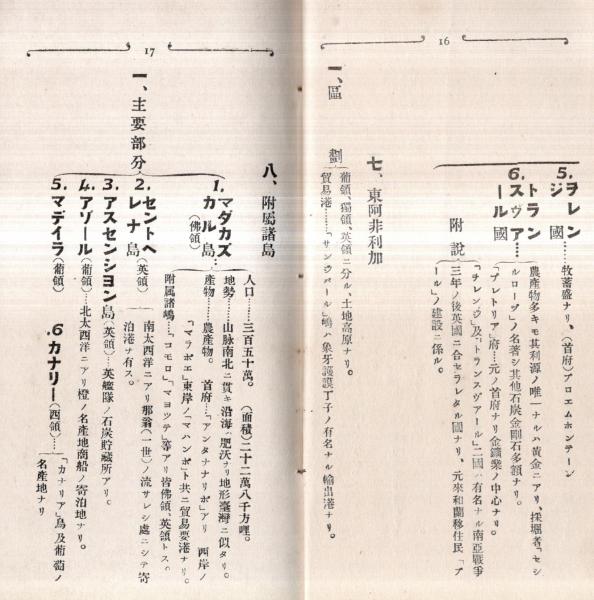 16
5.ヲレンジ國……牧畜盛ナリ、(首府)ブロエムホンテーン
6.トランスヴアール國……農產物多キモ其利源ノ唯一ナルハ黃金ニアリ、採堀者「セシルローヅ」ノ名著シ其他石炭金剛石多額ナリ。
「プレトリア」府…元ノ首府ナリ金鑛業ノ中心ナリ。
附說
「ヲレンヂ」及「トランスヴアール」二國ハ有名ナル南亞戰爭
三年ノ後英國ニ合セラレタル國ナリ、元來和蘭移住民「ブ
ール」ノ建設ニ係ル。
七、東阿非利加
一、區劃
葡領、獨領、英領ニ分ル、土地高原ナリ。
貿易港……「サンジバール」嶋ハ象牙護謨丁子ノ有名ナル輸出港ナリ。
17
八、附屬諸島
一、主要部分
1.マダカズカル島…(佛領)
人口……三百五十萬。(面積)二十二萬八千方哩。
地勢……山脈南北ニ貫キ沿海ハ肥沃ナリ地形臺灣ニ似タリ。
產物……農產物。首府…「アンタナナリボ」アリ 西岸ノ
「マラボエ」東岸ノ「マハンボ」ト共ニ貿易要港ナリ。
附屬諸嶋……「コモロ」「マヨツテ」等アリ皆佛領、英領トス。
2.セントヘレナ島(英領)
南太西洋ニアリ那翁(一世)ノ流サレシ處ニシテ寄
泊港ナ有ス。
3.アスセンシヨン島(英領)…英艦隊ノ石炭貯藏所アリ。
4.アゾール(葡領)…北太西洋ニアリ橙ノ名產地商船ノ寄泊地ナリ。
5.マデイラ(葡領) 6.カナリー(西領)……「カナリア」鳥及葡萄ノ
名產地ナリ